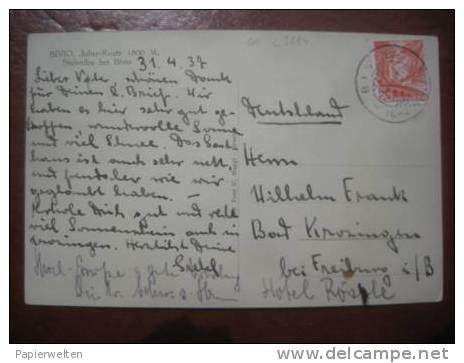 BIVIO, Julier-Route 1800 M.
Stalveder bei Bivio
31.4.37
Lieber Vater, schönen Dank
für Deinen l. Brief. Wir
haben es hier sehr gut ge-
troffen, wundervolle Sonne
und viel Schnee. Das Gast-
haus ist auch sehr nett,
und feudaler wie wir
geglaubt haben. –
Erhole Dich gut und
viel Sonnenschein auch in
Krozingen. Herzlichst Deine
Deutschland
Herrn
Wilhelm Frank
Bad Krozingen
bei Freiburg i/B
Hotel Rössle
© Papierwelten
delcampe.net